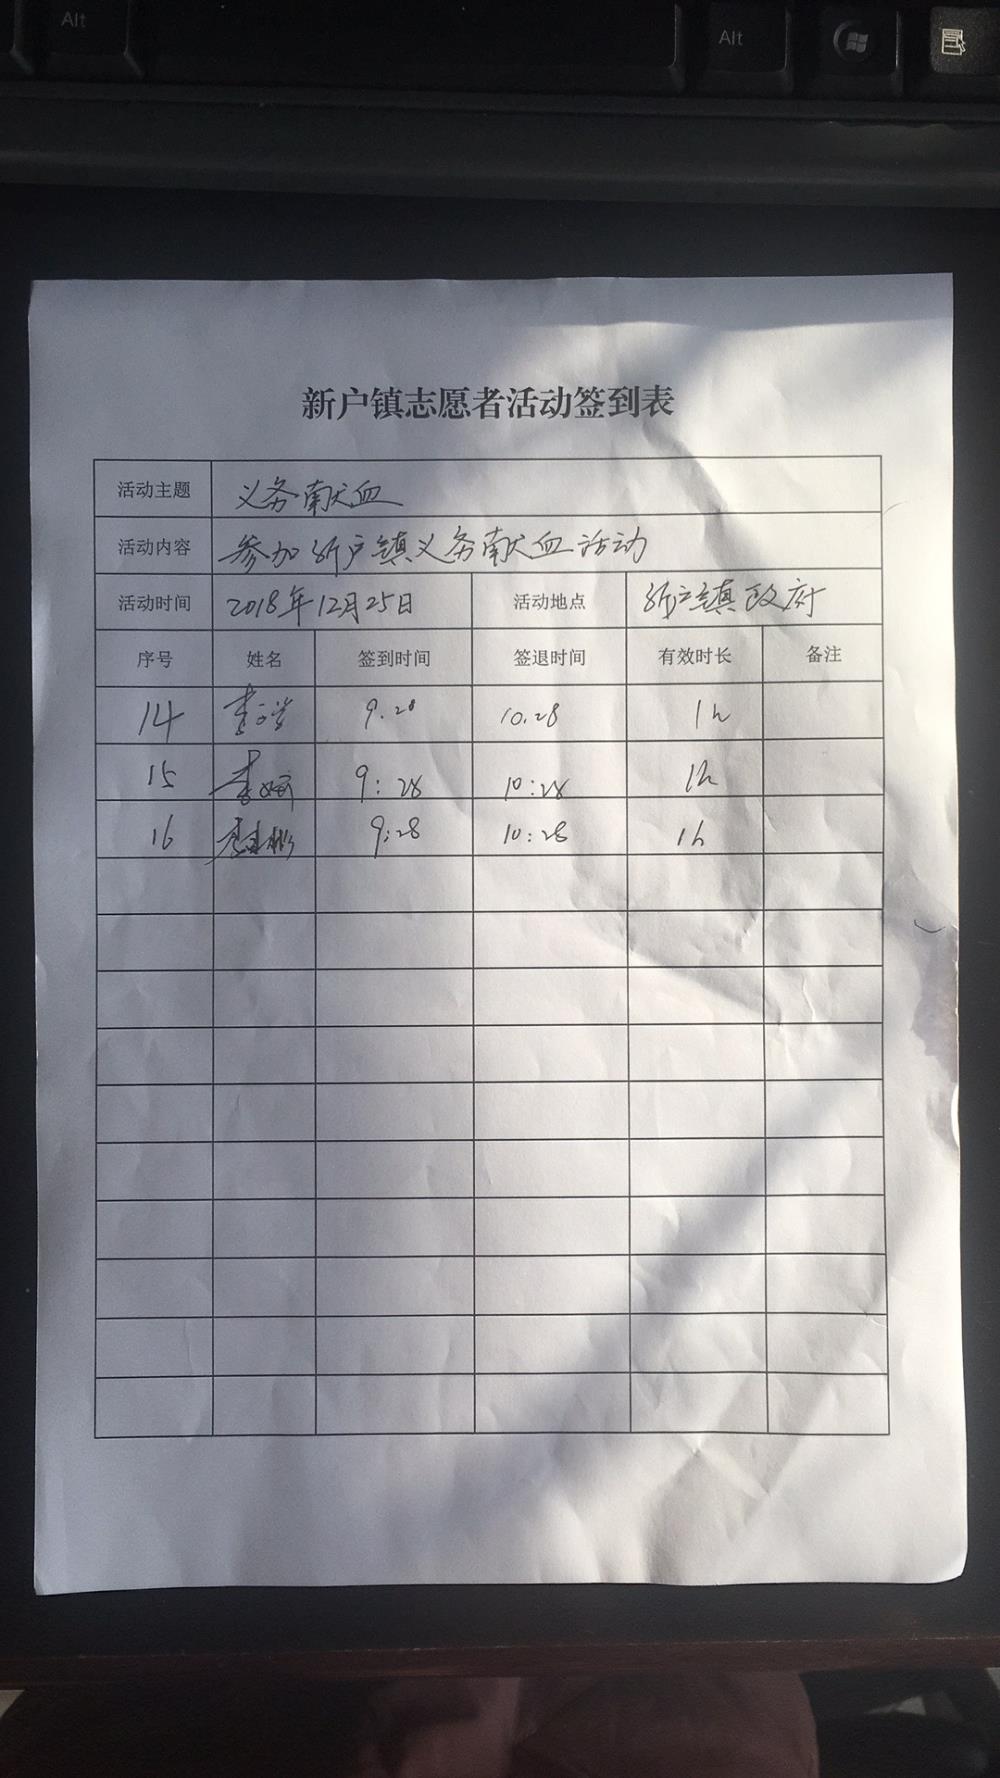 Alt
Alt
新户镇志愿者活动签到表
活动主题 义务献血
活动内容 参加新户镇义务献血活动
活动时间 2018年12月25日 活动地点 新户镇政府
序号 姓名 签到时间 签退时间 有效时长 备注
14 李 9.28 10.28 1h
15 李斌 9:28 10:28 1h
16 9:28 10:28 1h